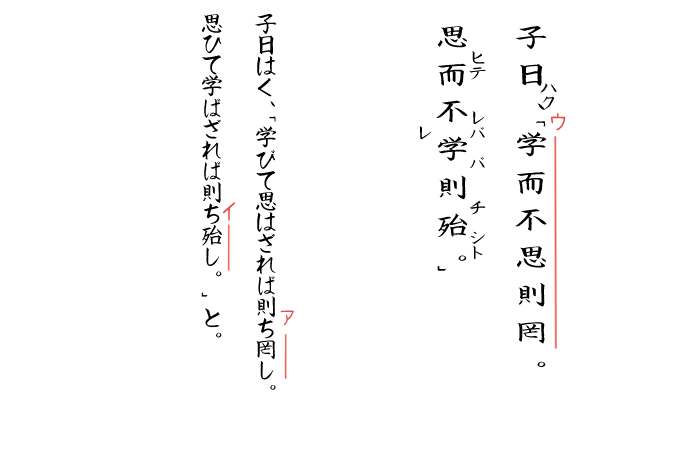 子曰ハク、「学而不思則罔。
ウ
思ヒテ而不レバレ学バ則チ殆シト。」
子曰はく、「学びて思はざれば則ち罔し。
ア
思ひて学ばざれば則ち殆し。」と。
イ